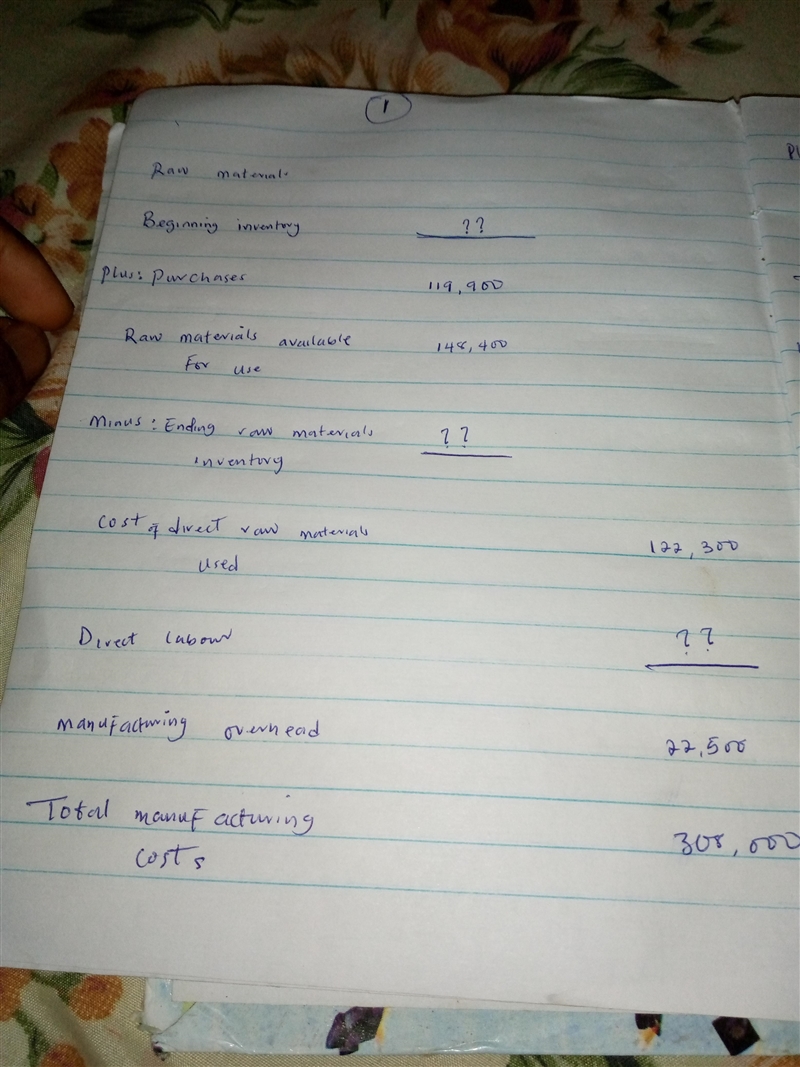 1
Raw materials
Beginning inventory ??
Plus: Purchases 119,900
Raw materials available 148,400
For use
Minus: Ending raw materials ??
inventory
Cost of direct raw materials
122,300
used
Direct labour ??
manufacturing overhead 22,500
Total manufacturing
308,000
costs
Pl